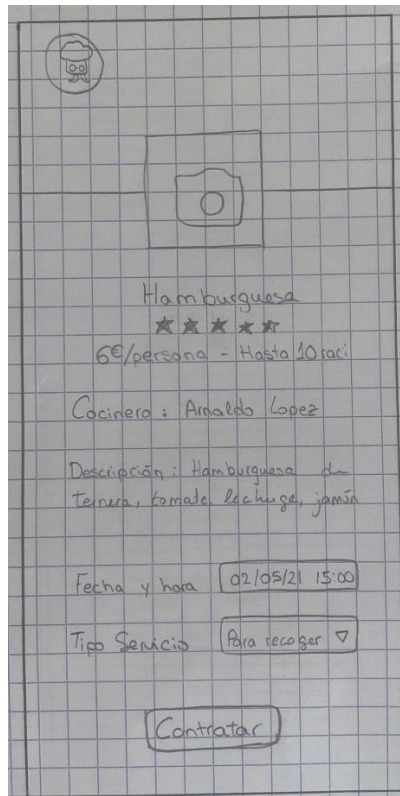 Hamburguesa
6€/persona - Hasta 10 raci
Cocinero: Arnaldo Lopez
Descripción: Hamburguesa de
ternera, tomate, lechuga, jamón
Fecha y hora 02/05/21 15:00
Tipo Servicio Para recoger
Contratar